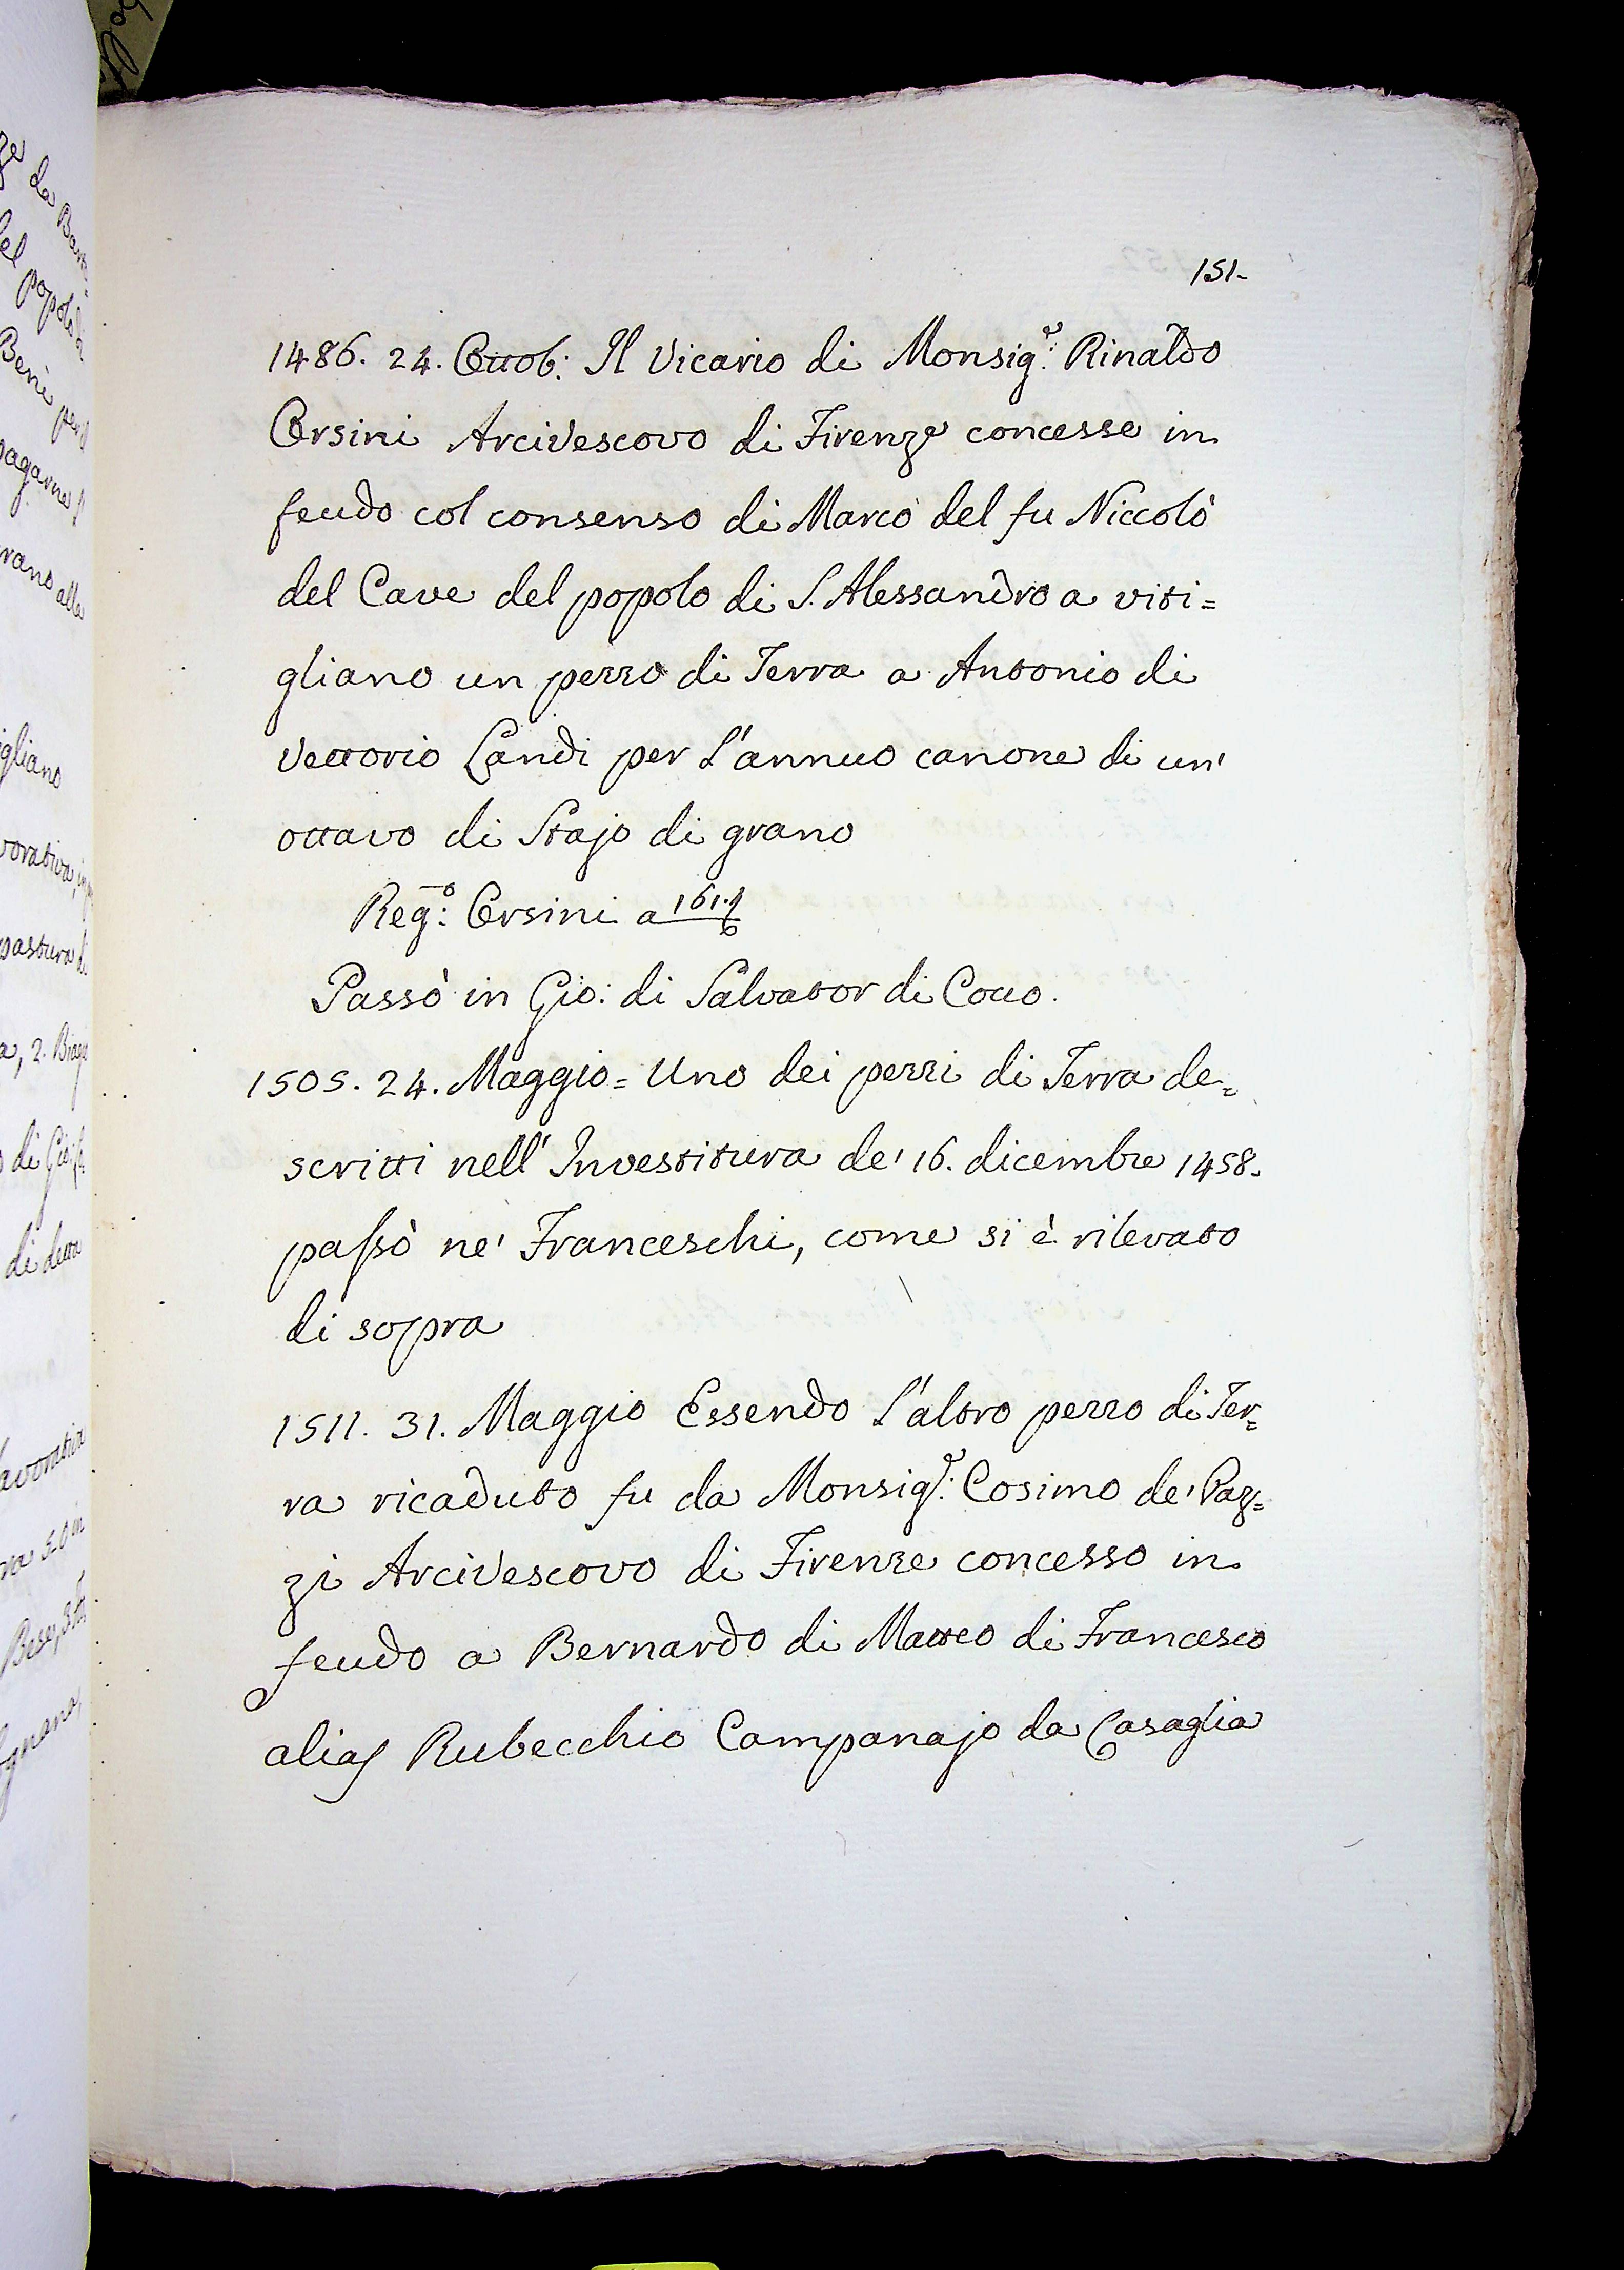 151.
1486. 24. Ottob: Il Vicario di Monsig.e Rinaldo
Orsini Arcivescovo di Firenze concesse in
feudo col consenso di Marco del fu Niccolò
del Cave del popolo di S. Alessandro a viti=
gliano un pezzo di Terra a Antonio di
Vettorio Landi per l'annuo canone di un'
ottavo di Stajo di grano
Reg:o Orsini a 161.
Passò in Gio: di Salvator di Cocco.
1505. 24. Maggio= Uno dei pezzi di Terra de=
scritti nell'Investitura de' 16. dicembre 1458.
passò ne' Franceschi, come si è rilevato
di sopra
1511. 31. Maggio Essendo l'altro pezzo di Ter=
ra ricaduto fu da Monsig.e: Cosimo de' Paz=
zi Arcivescovo di Firenze concesso in
feudo a Bernardo di Matteo di Francesco
alias Rubecchio Campanajo da Casaglia